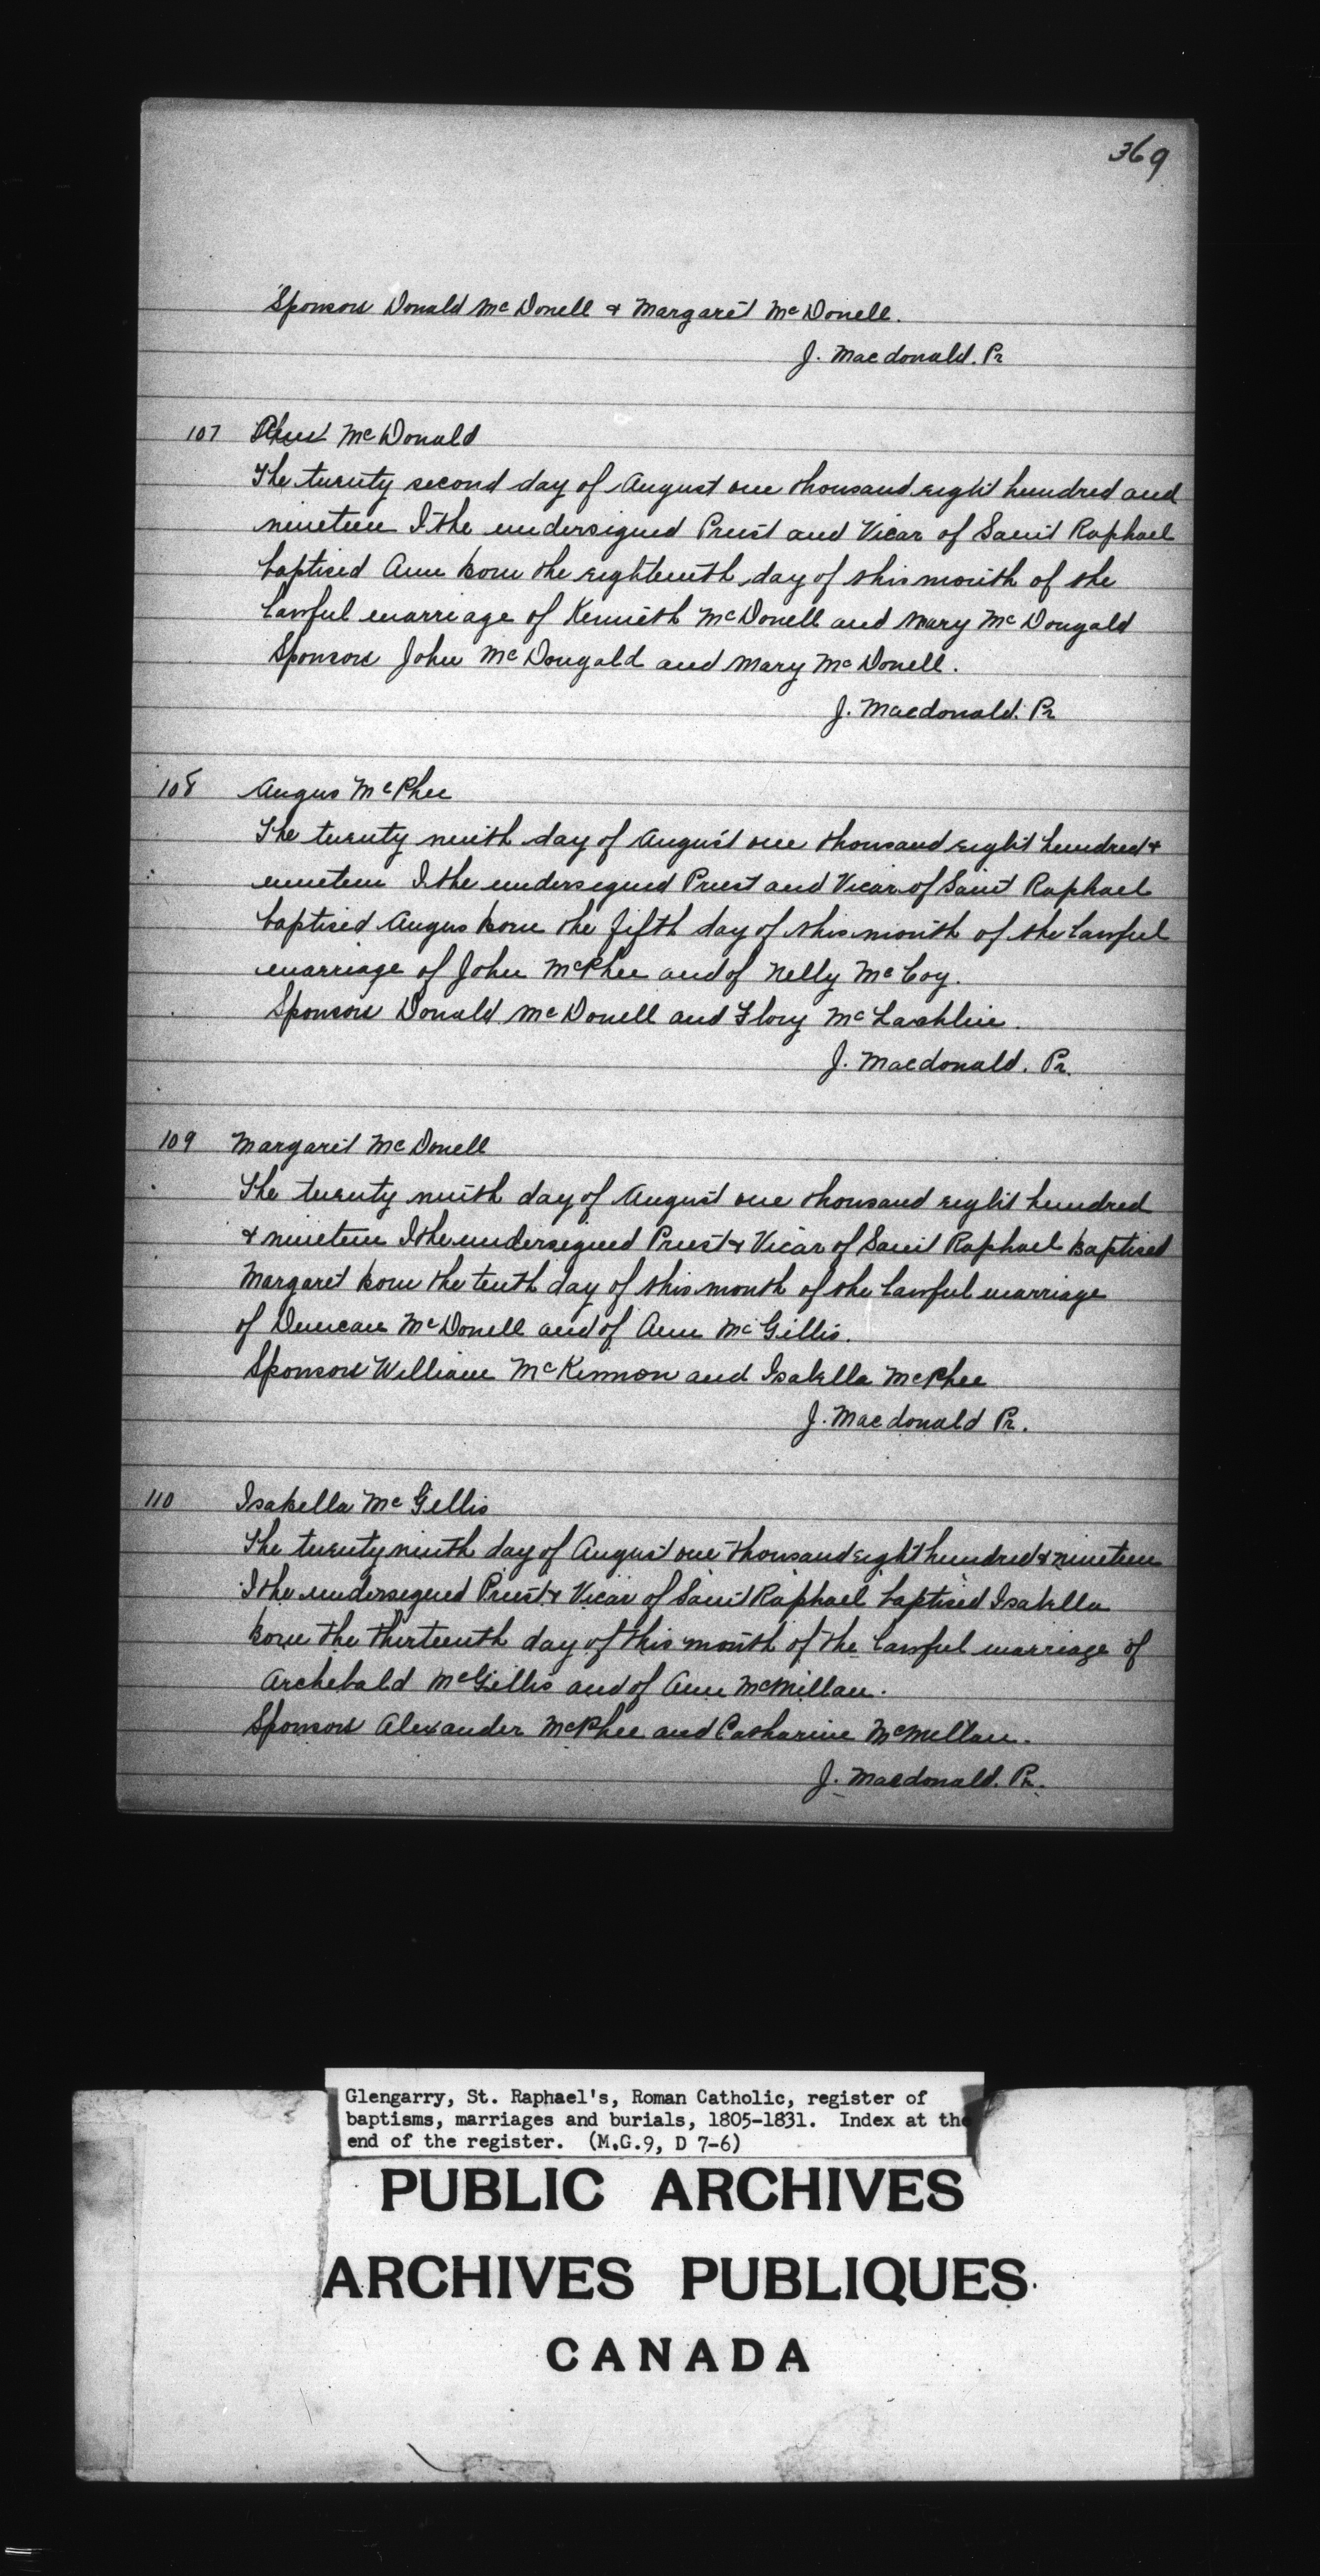 369
Sponsors Donald McDonell & Margaret McDonell.
J. Macdonald. Pr
107 McDonald
The twenty second day of August one thousand eight hundred and
nineteen I the undersigned Priest and Vicar of Saint Raphael
baptised Ann born the eighteenth day of this month of the
lawful marriage of Kenneth McDonell and Mary McDougald
Sponsors John McDougald and Mary McDonell.
J. Macdonald. Pr
108 Angus McPhee
The twenty ninth day of August one thousand eight hundred &
nineteen I the undersigned Priest and Vicar of Saint Raphael
baptised Angus born the fifth day of this month of the lawful
marriage of John McPhee and of Nelly McCoy.
Sponsors Donald McDonell and Flory McLachlin.
J. Macdonald. Pr.
109 Margaret McDonell
The twenty ninth day of August one thousand eight hundred
& nineteen I the undersigned Priest & Vicar of Saint Raphael baptised
Margaret born the tenth day of this month of the lawful marriage
of Duncan McDonell and of Ann McGillis.
Sponsors William McKinnon and Isabella McPhee
J. Macdonald Pr.
110 Isabella McGillis
The twenty ninth day of August one thousand eight hundred & nineteen
I the undersigned Priest & Vicar of Saint Raphael baptised Isabella
born the thirteenth day of this month of the lawful marriage of
Archibald McGillis and of Ann McMillan.
Sponsors Alexander McPhee and Catharine McMillan.
J. Macdonald. Pr.
Glengarry, St. Raphael's, Roman Catholic, register of
baptisms, marriages and burials, 1805-1831. Index at the
end of the register. (M.G.9, D 7-6)
PUBLIC ARCHIVES
ARCHIVES PUBLIQUES
CANADA